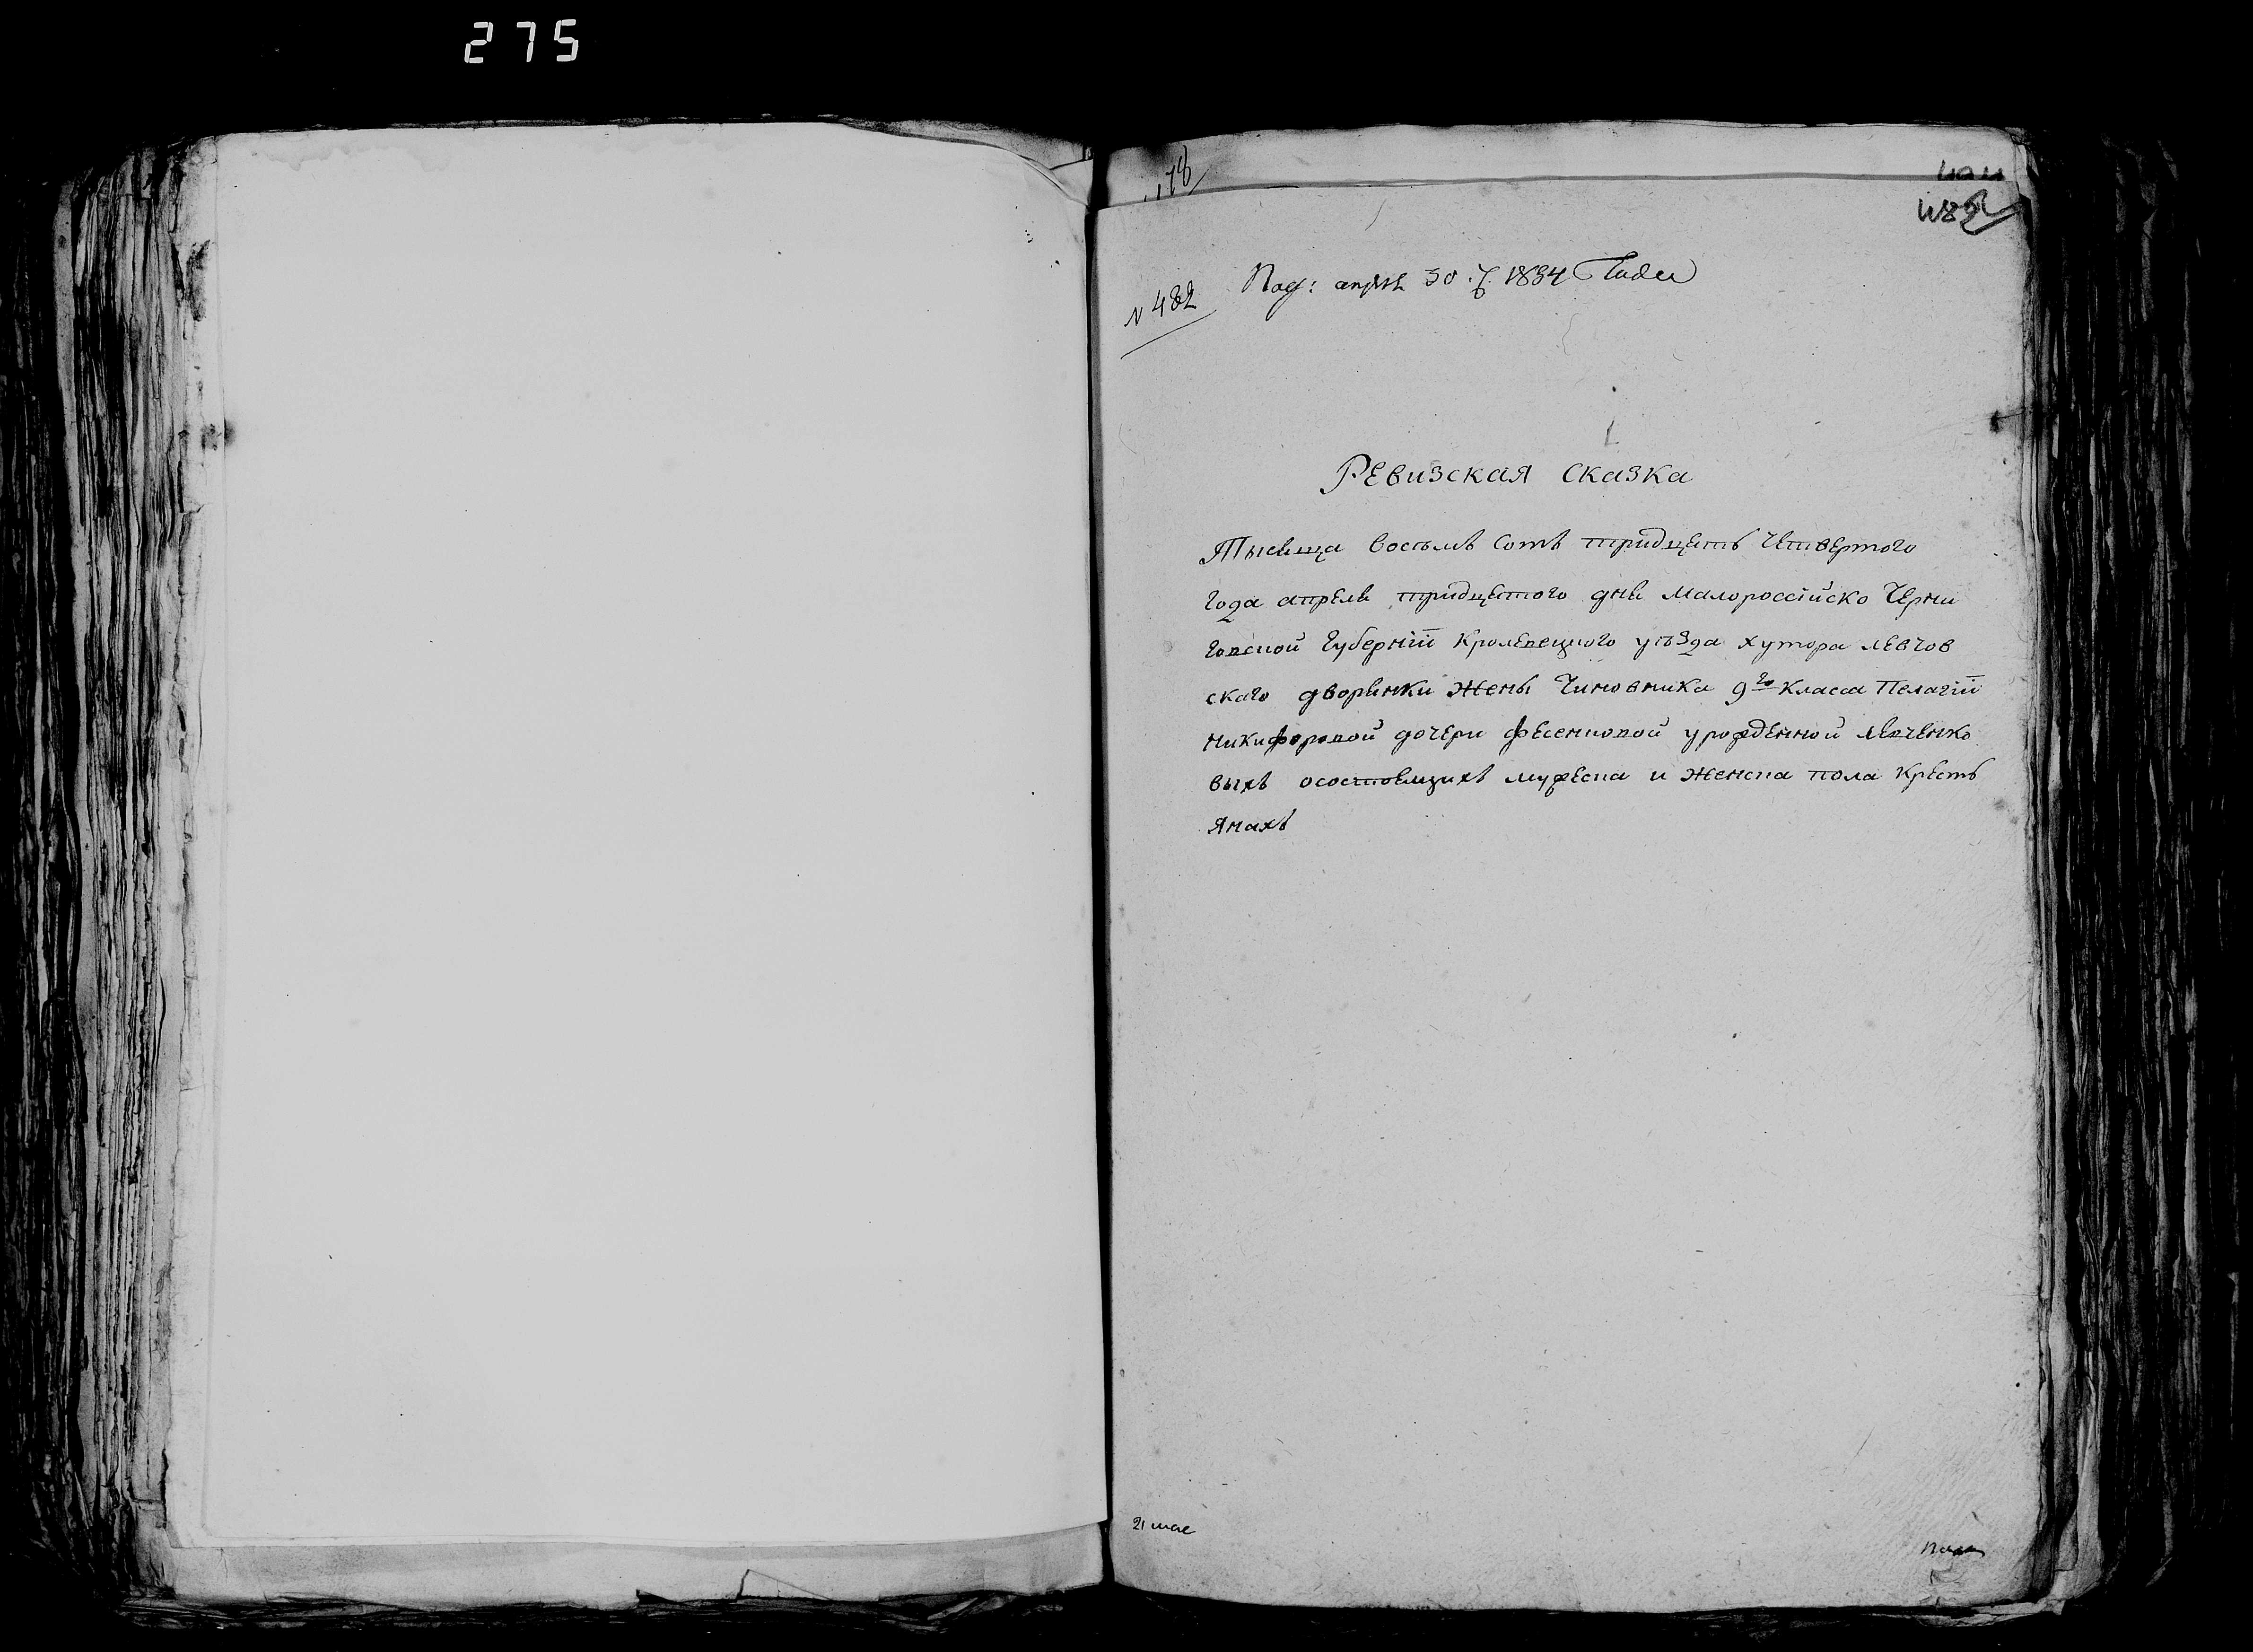 275
178
482
N 482
Под: апреля 30 д. 1834 Года
Ревизская сказка
Тысяща восьмъ сотъ тридцять четвертого
года апреля тридцятого дня малороссійско Черни
говской губерніи Кролевецкого уѣзда хутора левчов
скаго дворянки жены чиновника 9го класса Пелагіи
никифоровой дочери фесенковой урожденной левченко
выхъ осостоящихъ мужеска и женска пола кресть
янахъ
21 мая